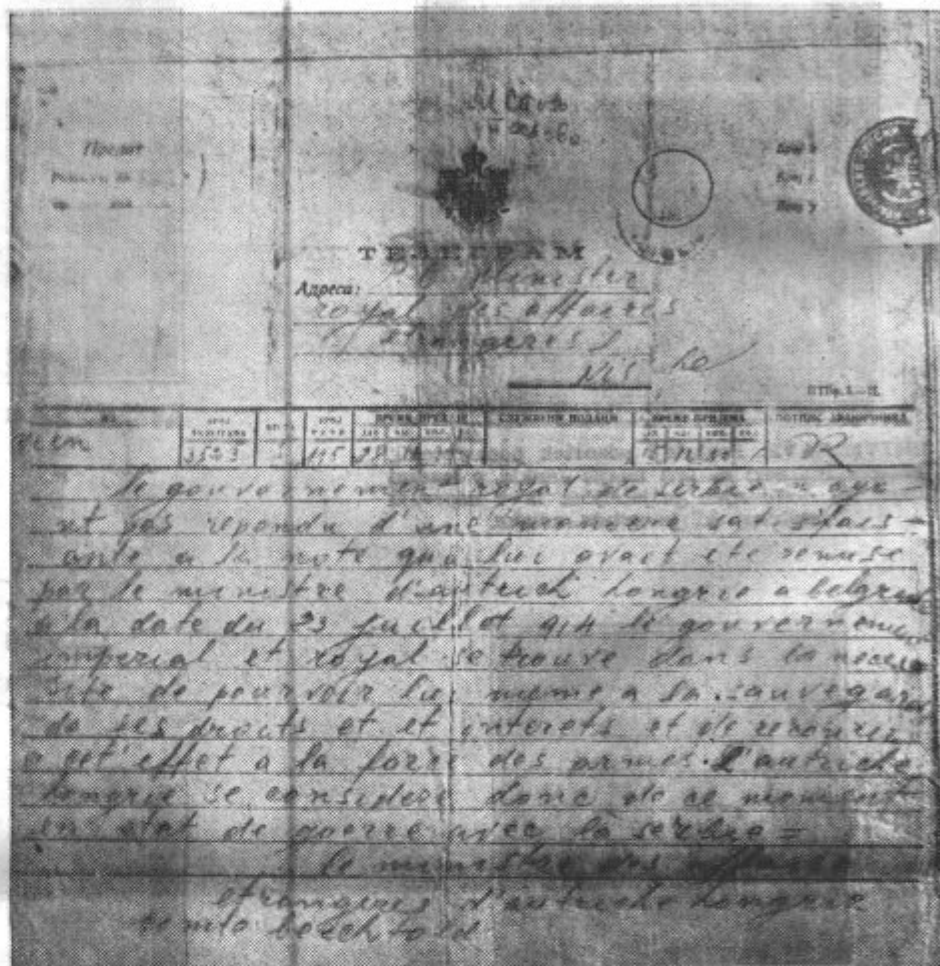 Предат
ТЕЛЕГРАМ
Адреса:
Minister
royal des affaires
etrangeres
Nis
wien
3523
le gouvernement royal de serbie n aya
nt pas repondu d'une maniere satisfais
ante a la note qui lui avait ete remise
par le ministre d'autrich hongrie a belgrad
a la date du 23 juillet 914 le gouvernement
imperial et royal se trouve dans la necess
ite de pourvoir lui meme a la sauvegar
de ses droits et et interets et de recourir
a cet effet a la force des armes. L'autriche
hongrie se considere donc de ce moment
en etat de guerre avec la serbie =
le ministre des affaires
etrangeres d'autriche hongrie